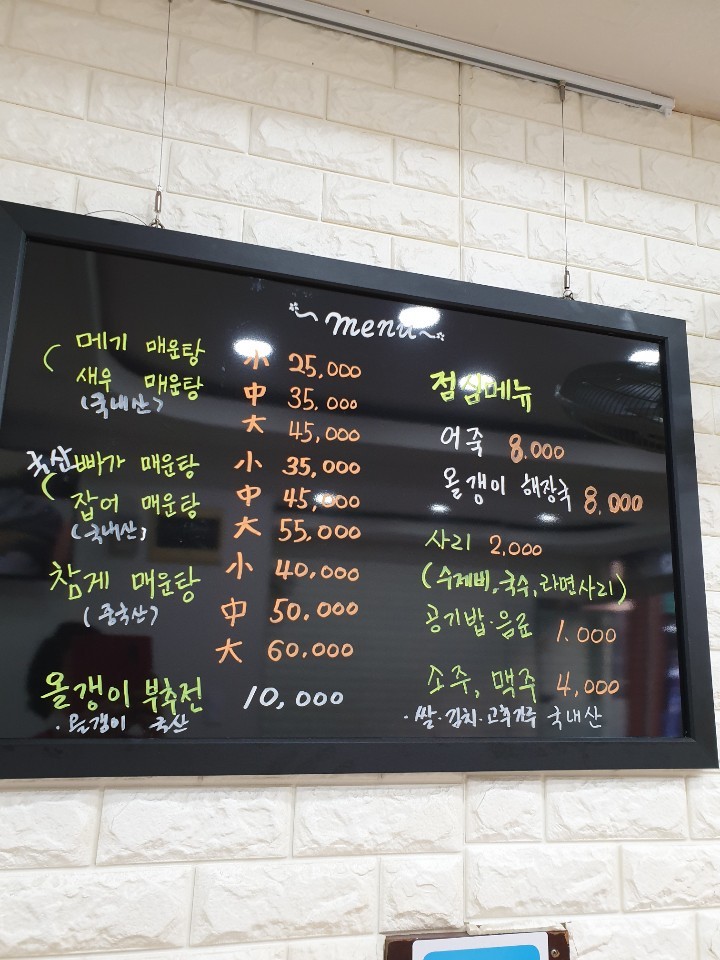 menu
메기 매운탕 小 25,000
새우 매운탕 中 35,000
(국내산) 大 45,000
국산 빠가 매운탕 小 35,000
잡어 매운탕 中 45,000
(국내산) 大 55,000
참게 매운탕 小 40,000
(중국산) 中 50,000
大 60,000
올갱이 부추전 10,000
· 올갱이 국산
점심메뉴
어죽 8,000
올갱이 해장국 8,000
사리 2,000
(수제비, 국수, 라면사리)
공기밥·음료 1,000
소주, 맥주 4,000
· 쌀·김치·고추가루 국내산